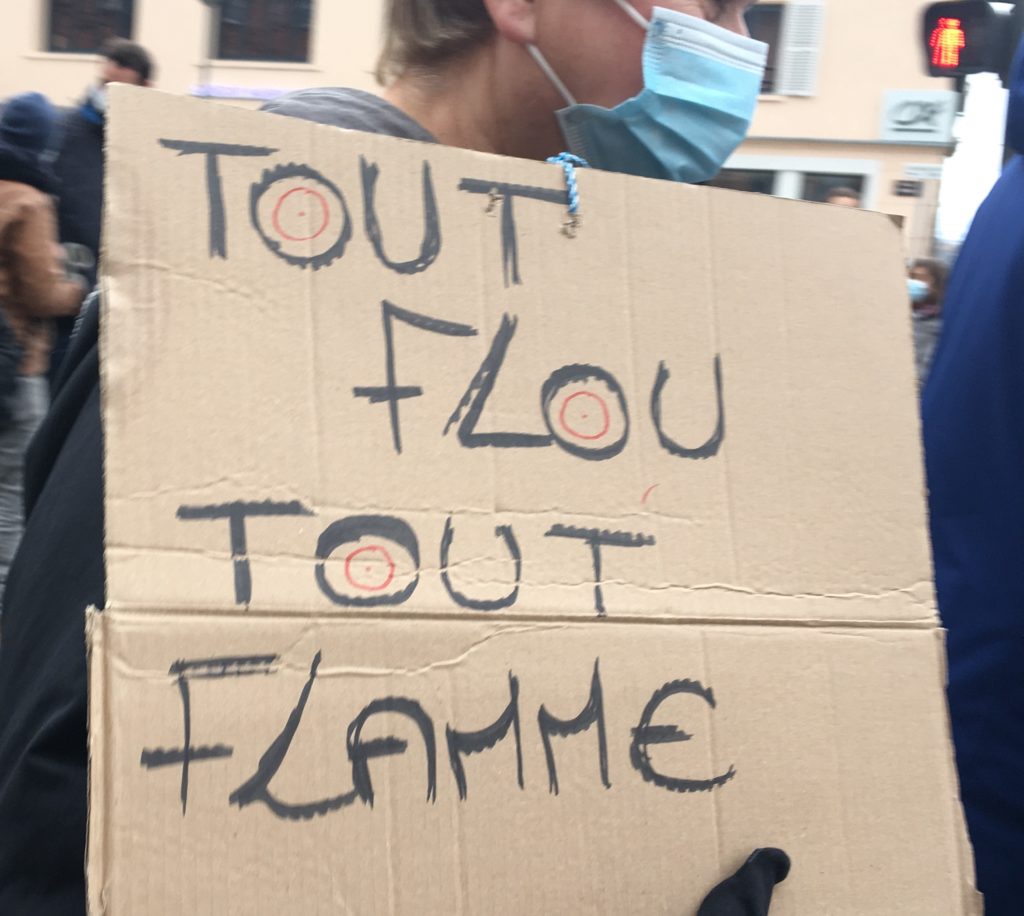 TOUT
FLOU
TOUT
FLAMME